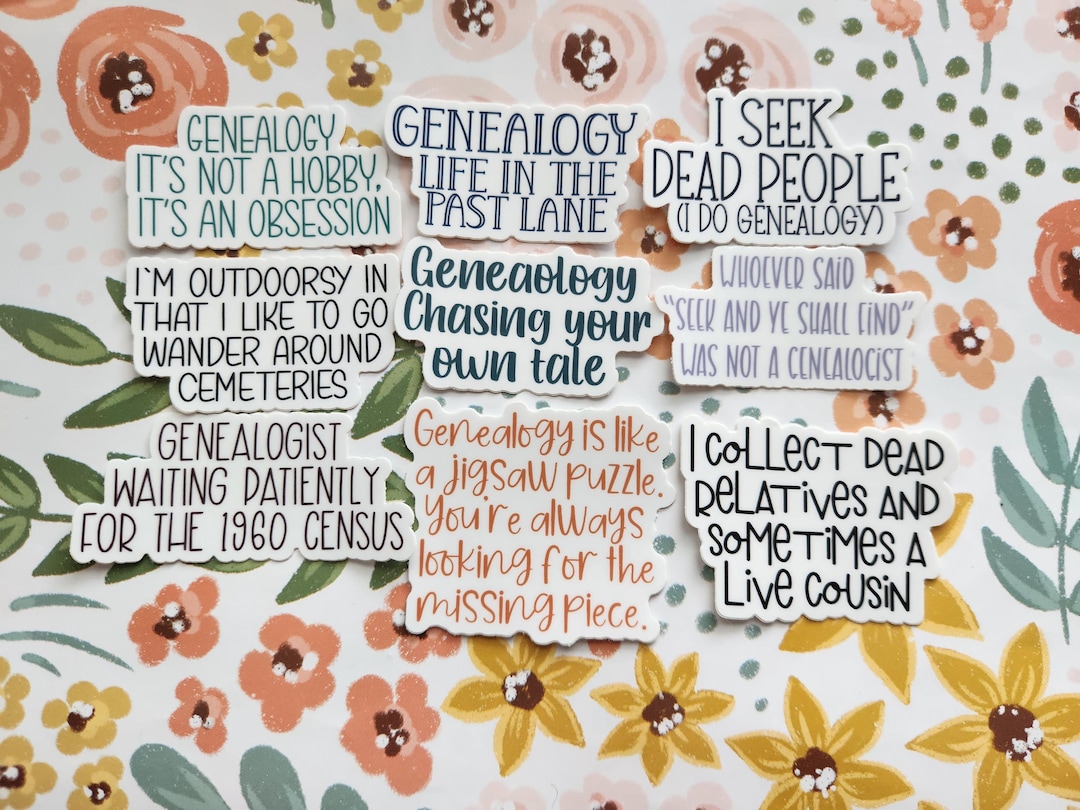 GENEALOGY
IT'S NOT A HOBBY,
IT'S AN OBSESSION
GENEALOGY
LIFE IN THE
PAST LANE
I SEEK
DEAD PEOPLE
(I DO GENEALOGY)
I`M OUTDOORSY IN
THAT I LIKE TO GO
WANDER AROUND
CEMETERIES
Geneaology
Chasing your
own tale
WHOEVER SAiD
"SEEK AND YE SHALL FiND"
WAS NOT A GENEALOGiST
GENEALOGIST
WAITING PATIENTLY
FOR THE 1960 CENSUS
Genealogy is like
a jigsaw puzzle.
You're always
looking for the
missing piece.
I COLLECT DEAD
RELATiVES AND
SOMETiMES A
LiVE COUSIN